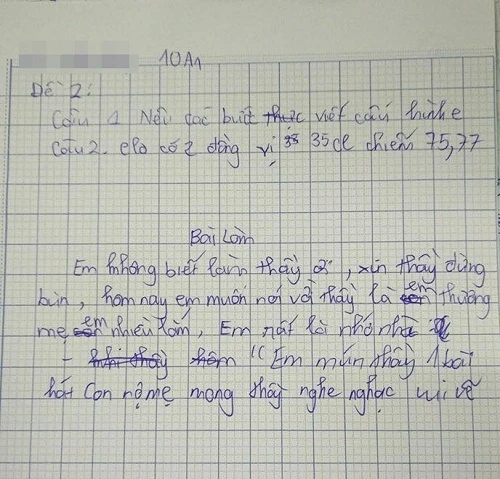 10A1
Đề 2:
Câu 1 Nêu các bước viết cấu hình e
Câu 2. clo có 2 đồng vị 35 cl chiếm 75,77
Bài Làm
Em không biết làm thầy ơi, xin thầy đừng
bùn, hôm nay em muốn nói với thầy là em thương
mẹ em nhiều lắm, Em rất là nhớ nhà
- "Em mún thầy 1 bài
hát Con nợ mẹ mong thầy nghe nghạc vui vẽ